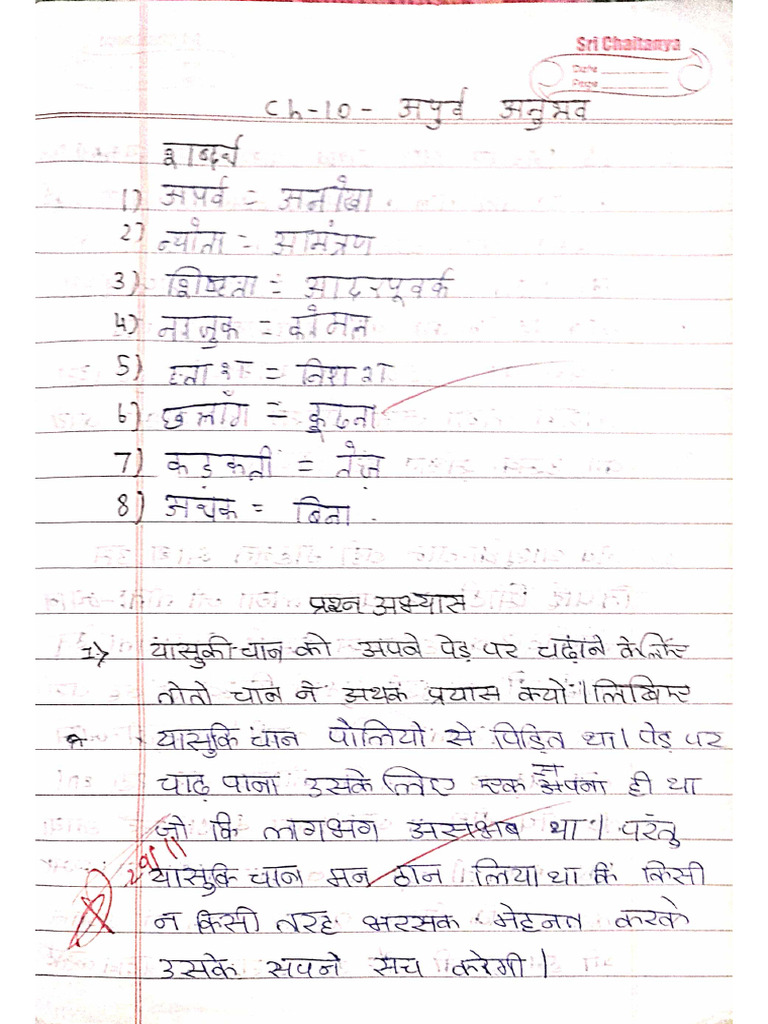 Sri Chaitanya
Date
Page
Ch-10 - अपुर्व अनुभव
शब्दार्थ
1) अपर्व = अनोखा.
2) न्योता = आमंत्रण
3) शिष्टता = आदरपूवर्क
4) नाजुक = कोमल
5) हताश = निराशा
6) छलाँग = कूदना
7) कड़कती = तेज़
8) अथक = बिना.
प्रश्न अभ्यास
1> यासुकी चान को अपने पेड़ पर चढ़ाने के लिए
तोतो चान ने अथक प्रयास क्यों। लिखिए
यासुकि चान पोलियो से पिड़ित था। पेड़ पर
चाढ़ पाना उसके लिए एक सपना ही था
जो कि लगभग असंभब था। परंतु
यासुकि चान मन ठान लिया था कि किसी
न किसी तरह भरसक मेहनत करके
उसके सपने सच करेगी।
29/11